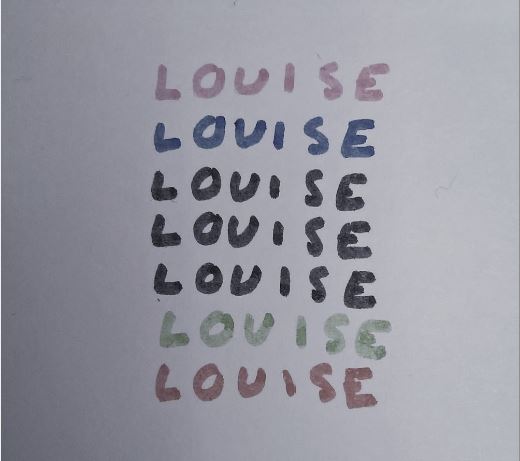 LOUISE
LOUISE
LOUISE
LOUISE
LOUISE
LOUISE
LOUISE